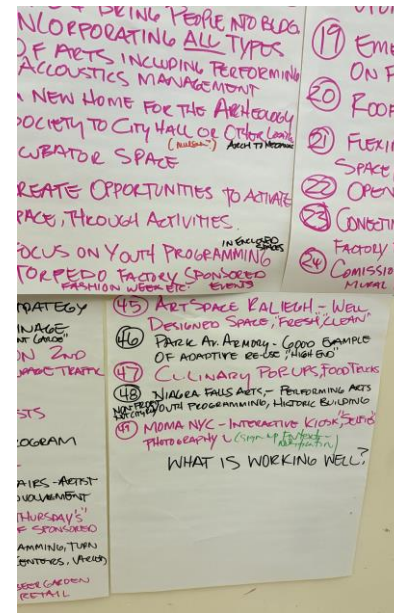 & BRING PEOPLE INTO BLDG
NCORPORATING ALL TYPES
OF ARTS INCLUDING PERFORMING
ACCOUSTICS MANAGEMENT
NEW HOME FOR THE ARHEOLOGY
SOCIETY TO CITY HALL OR OTHER
(museum)
CUBATOR SPACE
REATE OPPORTUNITIES TO ACTIVATE
PACE, THROUGH ACTIVITIES.
IN ENCLOSED
SPACES
OCUS ON YOUTH PROGRAMMING
TORPEDO FACTORY SPONSORED
FASHION WEEK ETC. EVENTS
19 EME
ON F
20 ROOF
21 FLEXI
SPACE
22 OPEN
23
FACTORY
24 COMISSIO
MURAL
RATEGY
NAGE
ON 2ND
TRAFFIC
STS
OGRAM
AIRS - ARTIST
INVOLVEMENT
THURSDAY'S"
F SPONSORED
AMMING, TURN
ENTERS,
BEER GARDEN
RETAIL
45 ARTSPACE RALIEGH - WELL
DESIGNED SPACE, "FRESH/CLEAN"
46 PARK AV. ARMORY - GOOD EXAMPLE
OF ADAPTIVE RE-USE, "HIGH END"
47 CULINARY POP UPS, FOOD TRUCKS
48 NIAGRA FALLS ARTS, - PERFORMING ARTS
NON PROFIT
YOUTH PROGRAMMING, HISTORIC BUILDING
49 MOMA NYC - INTERACTIVE KIOSK, "SELFIE"
PHOTOGRAPHY (sign-up for
WHAT IS WORKING WELL?